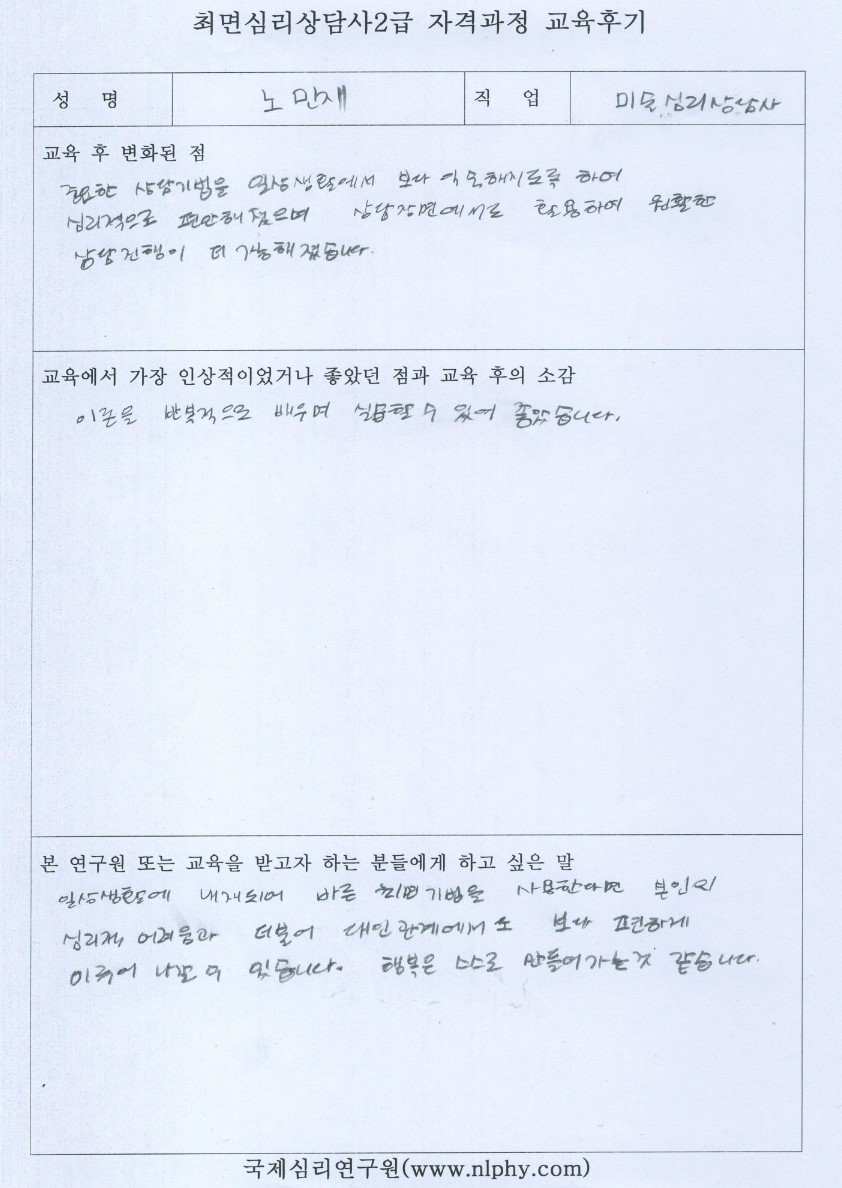 최면심리상담사2급 자격과정 교육후기
성 명 노민재 직 업 미술심리상담사
교육 후 변화된 점
필요한 상담기법을 일상생활에서 보다 익숙해지도록 하여
심리적으로 편안해졌으며 상담장면에서도 활용하여 원활한
상담진행이 더 가능해졌습니다.
교육에서 가장 인상적이었거나 좋았던 점과 교육 후의 소감
이론을 반복적으로 배우며 실습할 수 있어 좋았습니다.
본 연구원 또는 교육을 받고자 하는 분들에게 하고 싶은 말
일상생활에 내재되어 바른 최면기법을 사용한다면 본인의
심리적 어려움과 더불어 대인관계에서도 보다 편하게
이루어 나갈 수 있습니다. 행복은 스스로 만들어가는것 같습니다.
국제심리연구원(www.nlphy.com)